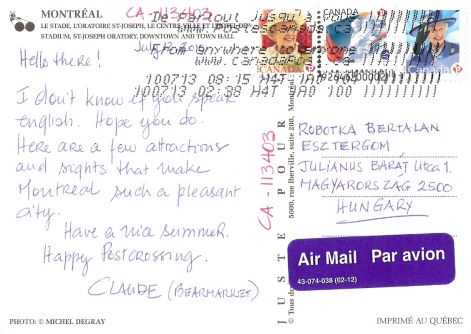 MONTRÉAL
CA-113403
LE STADE, L'ORATOIRE ST-JOSEPH, LE CENTRE-VILLE ET L'HÔTEL DE VILLE
STADIUM, ST-JOSEPH ORATORY, DOWNTOWN AND TOWN HALL
De partout jusqu'à
www.postescanada.ca
from anywhere to anyone
www.canadapost.ca
100713 08:15 H4T 1A0
100713 02:38 H4T 1A0 100
CANADA
CANADA
P
Hello there!
I don't know if you speak
english. Hope you do.
Here are a few attractions
and sights that make
Montreal such a pleasant
city.
Have a nice summer.
Happy Postcrossing.
CLAUDE (BEARMARKET)
PHOTO: © MICHEL DEGRAY
JUSTE POUR
5000, rue Iberville, suite 208, Montréal
CA-113403
ROBOTKA BERTALAN
ESZTERGOM
JULIANUS BARÁT Utca 1.
MAGYARORSZAG 2500
HUNGARY
Air Mail Par avion
43-074-038 (02-12)
IMPRIMÉ AU QUÉBEC